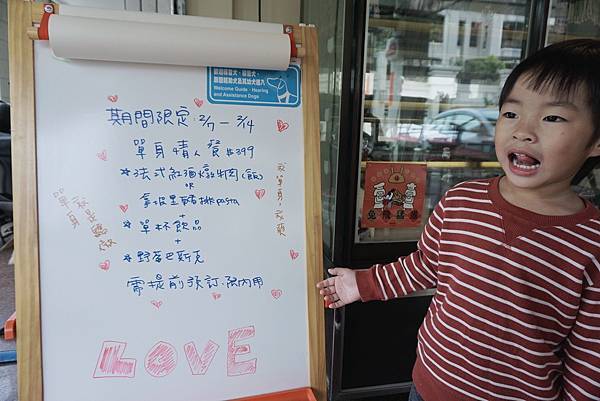 歡迎導盲犬、導聾犬、
肢體輔助犬及其幼犬進入
Welcome Guide、Hearing
and Assistance Dogs
期間限定:2/7 — 2/14
單身情人餐 $399
*法式紅酒燉牛肉(飯)
or
拿坡里豬排pasta
+
*單杯飲品
+
*野莓巴斯克
需提前預訂.限內用
我單身,我
單身
LOVE